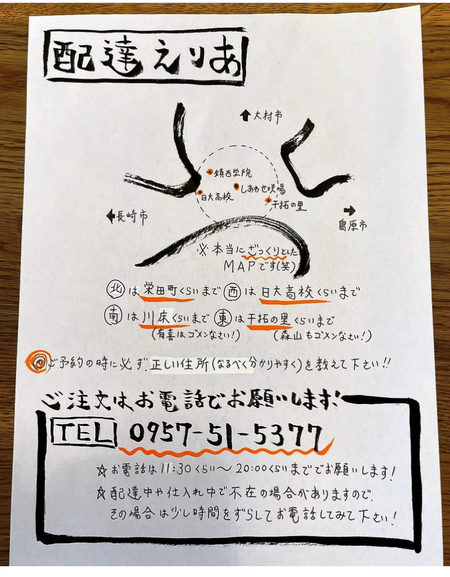 配達えりあ
↑大村市
鎮西学院
しあわせ咲場
日大高校
干拓の里
←長崎市
→島原市
※本当にざっくりとした
MAPです(笑)
北は栄田町くらいまで 西は日大高校くらいまで
南は川床くらいまで 東は干拓の里くらいまで
(有喜はゴメンなさい!) (森山もゴメンなさい!)
◎ご予約の時に必ず正しい住所(なるべく分かりやすく)を教えて下さい!!
ご注文は、お電話でお願いします!
TEL 0957-51-5377
☆お電話は11:30くらい〜20:00くらいまででお願いします!
☆配達中や仕入れ中で不在の場合がありますので、
その場合は少し時間をずらしてお電話してみて下さい!